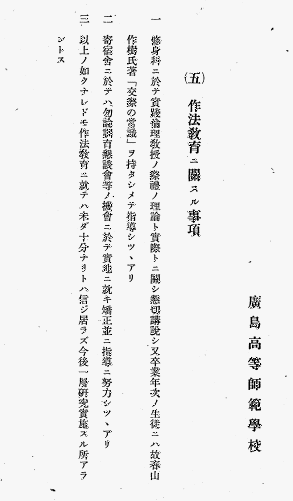 廣島高等師範學校
(五) 作法敎育ニ關スル事項
一 修身科ニ於テ實踐倫理敎授ノ際禮ノ理論ト實際トニ關シ懇切講說シ又卒業年次ノ生徒ニハ故春山
作樹氏著「交際の常識」ヲ持タシメテ指導シツヽアリ
二 寄宿舍ニ於テハ勿論訓育懇談會等ノ機會ニ於テ實地ニ就キ矯正並ニ指導ニ努力シツヽアリ
三 以上ノ如クナレドモ作法敎育ニ就テハ未ダ十分ナリトハ信ジ居ラズ今後一層硏究實施スル所アラ
ントス